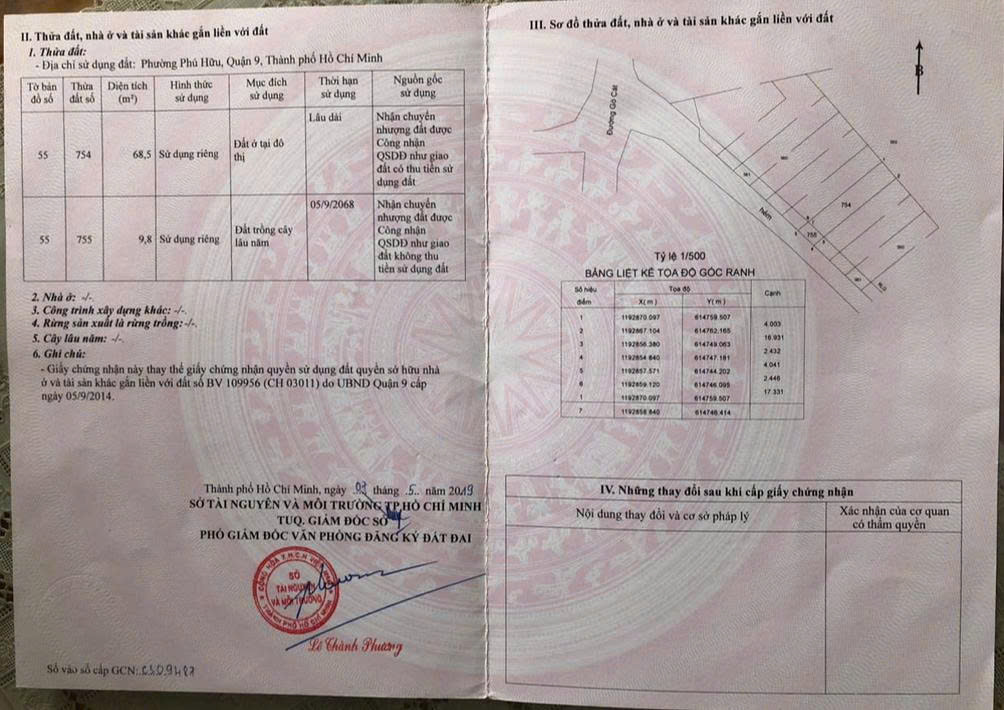 II. Thửa đất, nhà ở và tài sản khác gắn liền với đất
1. Thửa đất:
- Địa chỉ sử dụng đất: Phường Phú Hữu, Quận 9, Thành phố Hồ Chí Minh
Tờ bản đồ số Thửa đất số Diện tích (m²) Hình thức sử dụng Mục đích sử dụng Thời hạn sử dụng Nguồn gốc sử dụng
55 754 68,5 Sử dụng riêng Đất ở tại đô thị Lâu dài Nhận chuyển nhượng đất được Công nhận QSDĐ như giao đất có thu tiền sử dụng đất
55 755 9,8 Sử dụng riêng Đất trồng cây lâu năm 05/9/2068 Nhận chuyển nhượng đất được Công nhận QSDĐ như giao đất không thu tiền sử dụng đất
2. Nhà ở: -/-.
3. Công trình xây dựng khác: -/-.
4. Rừng sản xuất là rừng trồng:-/-.
5. Cây lâu năm: -/-.
6. Ghi chú:
- Giấy chứng nhận này thay thế giấy chứng nhận quyền sử dụng đất quyền sở hữu nhà
ở và tài sản khác gắn liền với đất số BV 109956 (CH 03011) do UBND Quận 9 cấp
ngày 05/9/2014.
Thành phố Hồ Chí Minh, ngày 03 tháng .5. năm 2019
SỞ TÀI NGUYÊN VÀ MÔI TRƯỜNG TP.HỒ CHÍ MINH
TUQ. GIÁM ĐỐC SỞ
PHÓ GIÁM ĐỐC VĂN PHÒNG ĐĂNG KÝ ĐẤT ĐAI
SỞ
TÀI NGUYÊN
VÀ MÔI TRƯỜNG
THÀNH PHỐ HỒ CHÍ MINH
Lê Thành Phương
Số vào sổ cấp GCN:
III. Sơ đồ thửa đất, nhà ở và tài sản khác gắn liền với đất
B
Đường Gò Cát
hẻm
754
755
Tỷ lệ 1/500
BẢNG LIỆT KÊ TỌA ĐỘ GÓC RANH
Số hiệu điểm Tọa độ Cạnh
X(m) Y(m)
1 1192870.097 614759.507
4.003
2 1192867.104 614762.165
16.931
3 1192856.380 614749.063
2.432
4 1192854.840 614747.181
4.041
5 1192857.571 614744.202
2.446
6 1192859.120 614746.095
17.331
1 1192870.097 614759.507
7 1192858.640 614746.414
IV. Những thay đổi sau khi cấp giấy chứng nhận
Nội dung thay đổi và cơ sở pháp lý
Xác nhận của cơ quan
có thẩm quyền